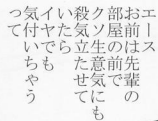 エース
お前は先輩の
部屋の前で
クソ生意気にも
殺気立たせて
いたら
イヤでも
気付いちゃう
って